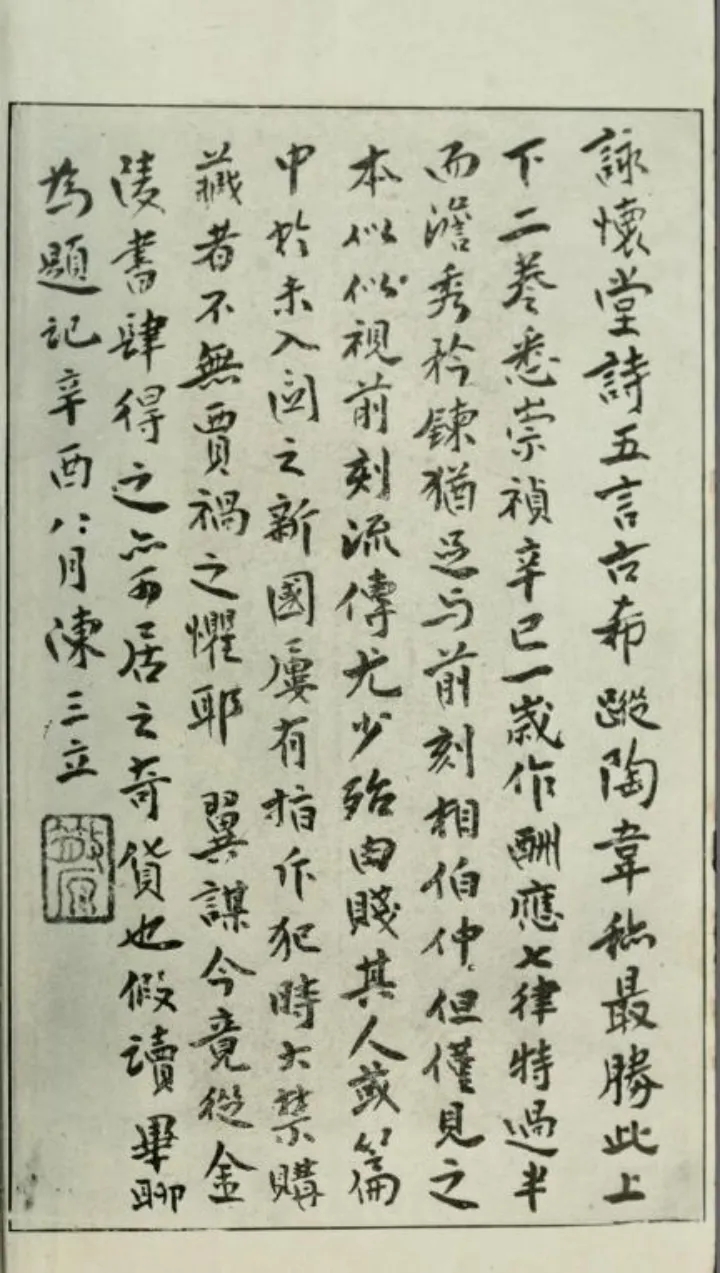 詠懷堂詩五言古希蹤陶韋稱最勝此上
下二卷悉崇禎辛巳一歲作酬應七律特過半
而澹秀矜鍊猶足与前刻相伯仲但僅見之
本似似視前刻流傳尤少殆由賤其人或篇
中於未入関之新國屢有指斥犯時大禁購
藏者不無賈禍之懼耶 翼謀今竟從金
陵書肆得之亦可居之奇貨也假讀畢聊
為題記辛酉八月陳三立
散原